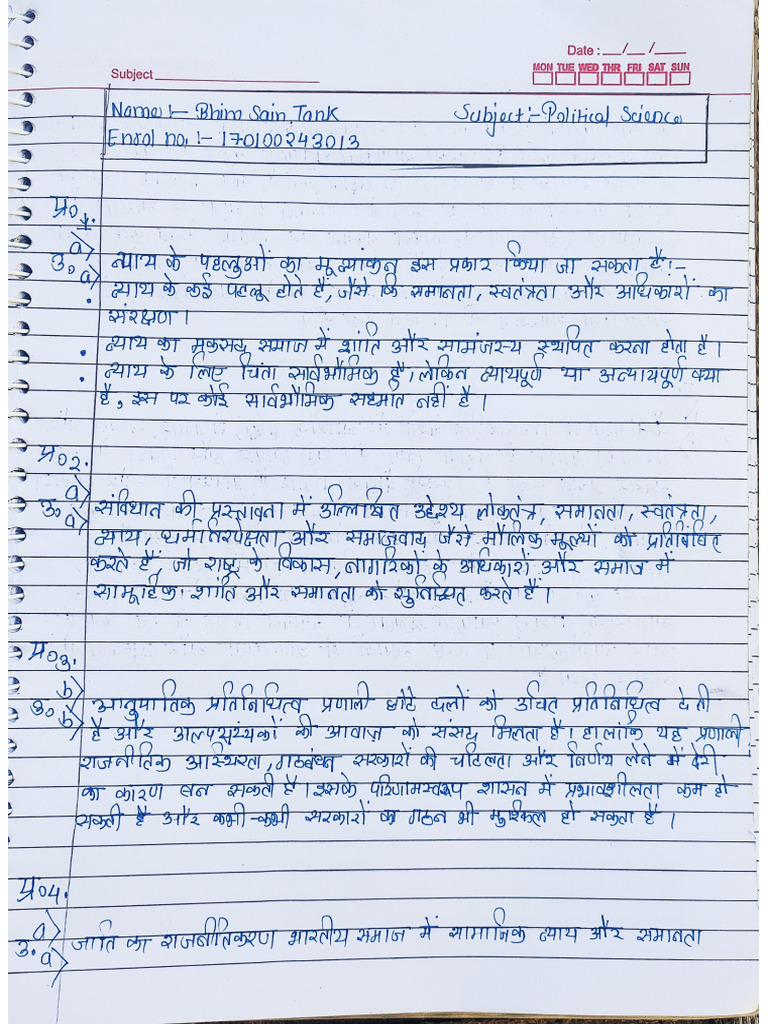 Date : __/__/____
MON TUE WED THR FRI SAT SUN
Subject
Name :- Bhim Sain Tank Subject :- Political Science
Enrol no. :- 170100243013
प्र०1.
a)
उ० a) न्याय के पहलुओं का मूल्यांकन इस प्रकार किया जा सकता है :-
• न्याय के कई पहलू होते हैं, जैसे कि समानता, स्वतंत्रता और अधिकारों का
संरक्षण।
• न्याय का मकसद समाज में शांति और सामंजस्य स्थपित करना होता है।
• न्याय के लिए चिंता सार्वभौमिक है, लेकिन न्यायपूर्ण या अन्यायपूर्ण क्या
है, इस पर कोई सार्वभौमिक सहमति नहीं है।
प्र०2.
a)
उ० a) संविधान की प्रस्तावना में उल्लिखित उद्देश्य लोकतंत्र, समानता, स्वतंत्रता,
न्याय, धर्मनिरपेक्षता और समाजवाद जैसे मौलिक मूल्यों को प्रतिबिंबित
करते हैं, जो राष्ट्र के विकास, नागरिकों के अधिकारों और समाज में
सामूहिक शांति और समानता को सुनिश्चित करते हैं।
प्र०3.
b)
उ० b) आनुपातिक प्रतिनिधित्व प्रणाली छोटे दलों को उचित प्रतिनिधित्व देती
है और अल्पसंख्यकों की आवाज़ को संसद मिलता है। हालांकि यह प्रणाली
राजनीतिक अस्थिरता, गठबंधन सरकारों की जटिलता और निर्णय लेने में देरी
का कारण बन सकती है। इसके परिणामस्वरूप शासन में प्रभावशीलता कम हो
सकती है और कभी-कभी सरकारों का गठन भी मुश्किल हो सकता है।
प्र०4.
a)
उ. a) जाति का राजनीतिकरण भारतीय समाज में सामाजिक न्याय और समानता